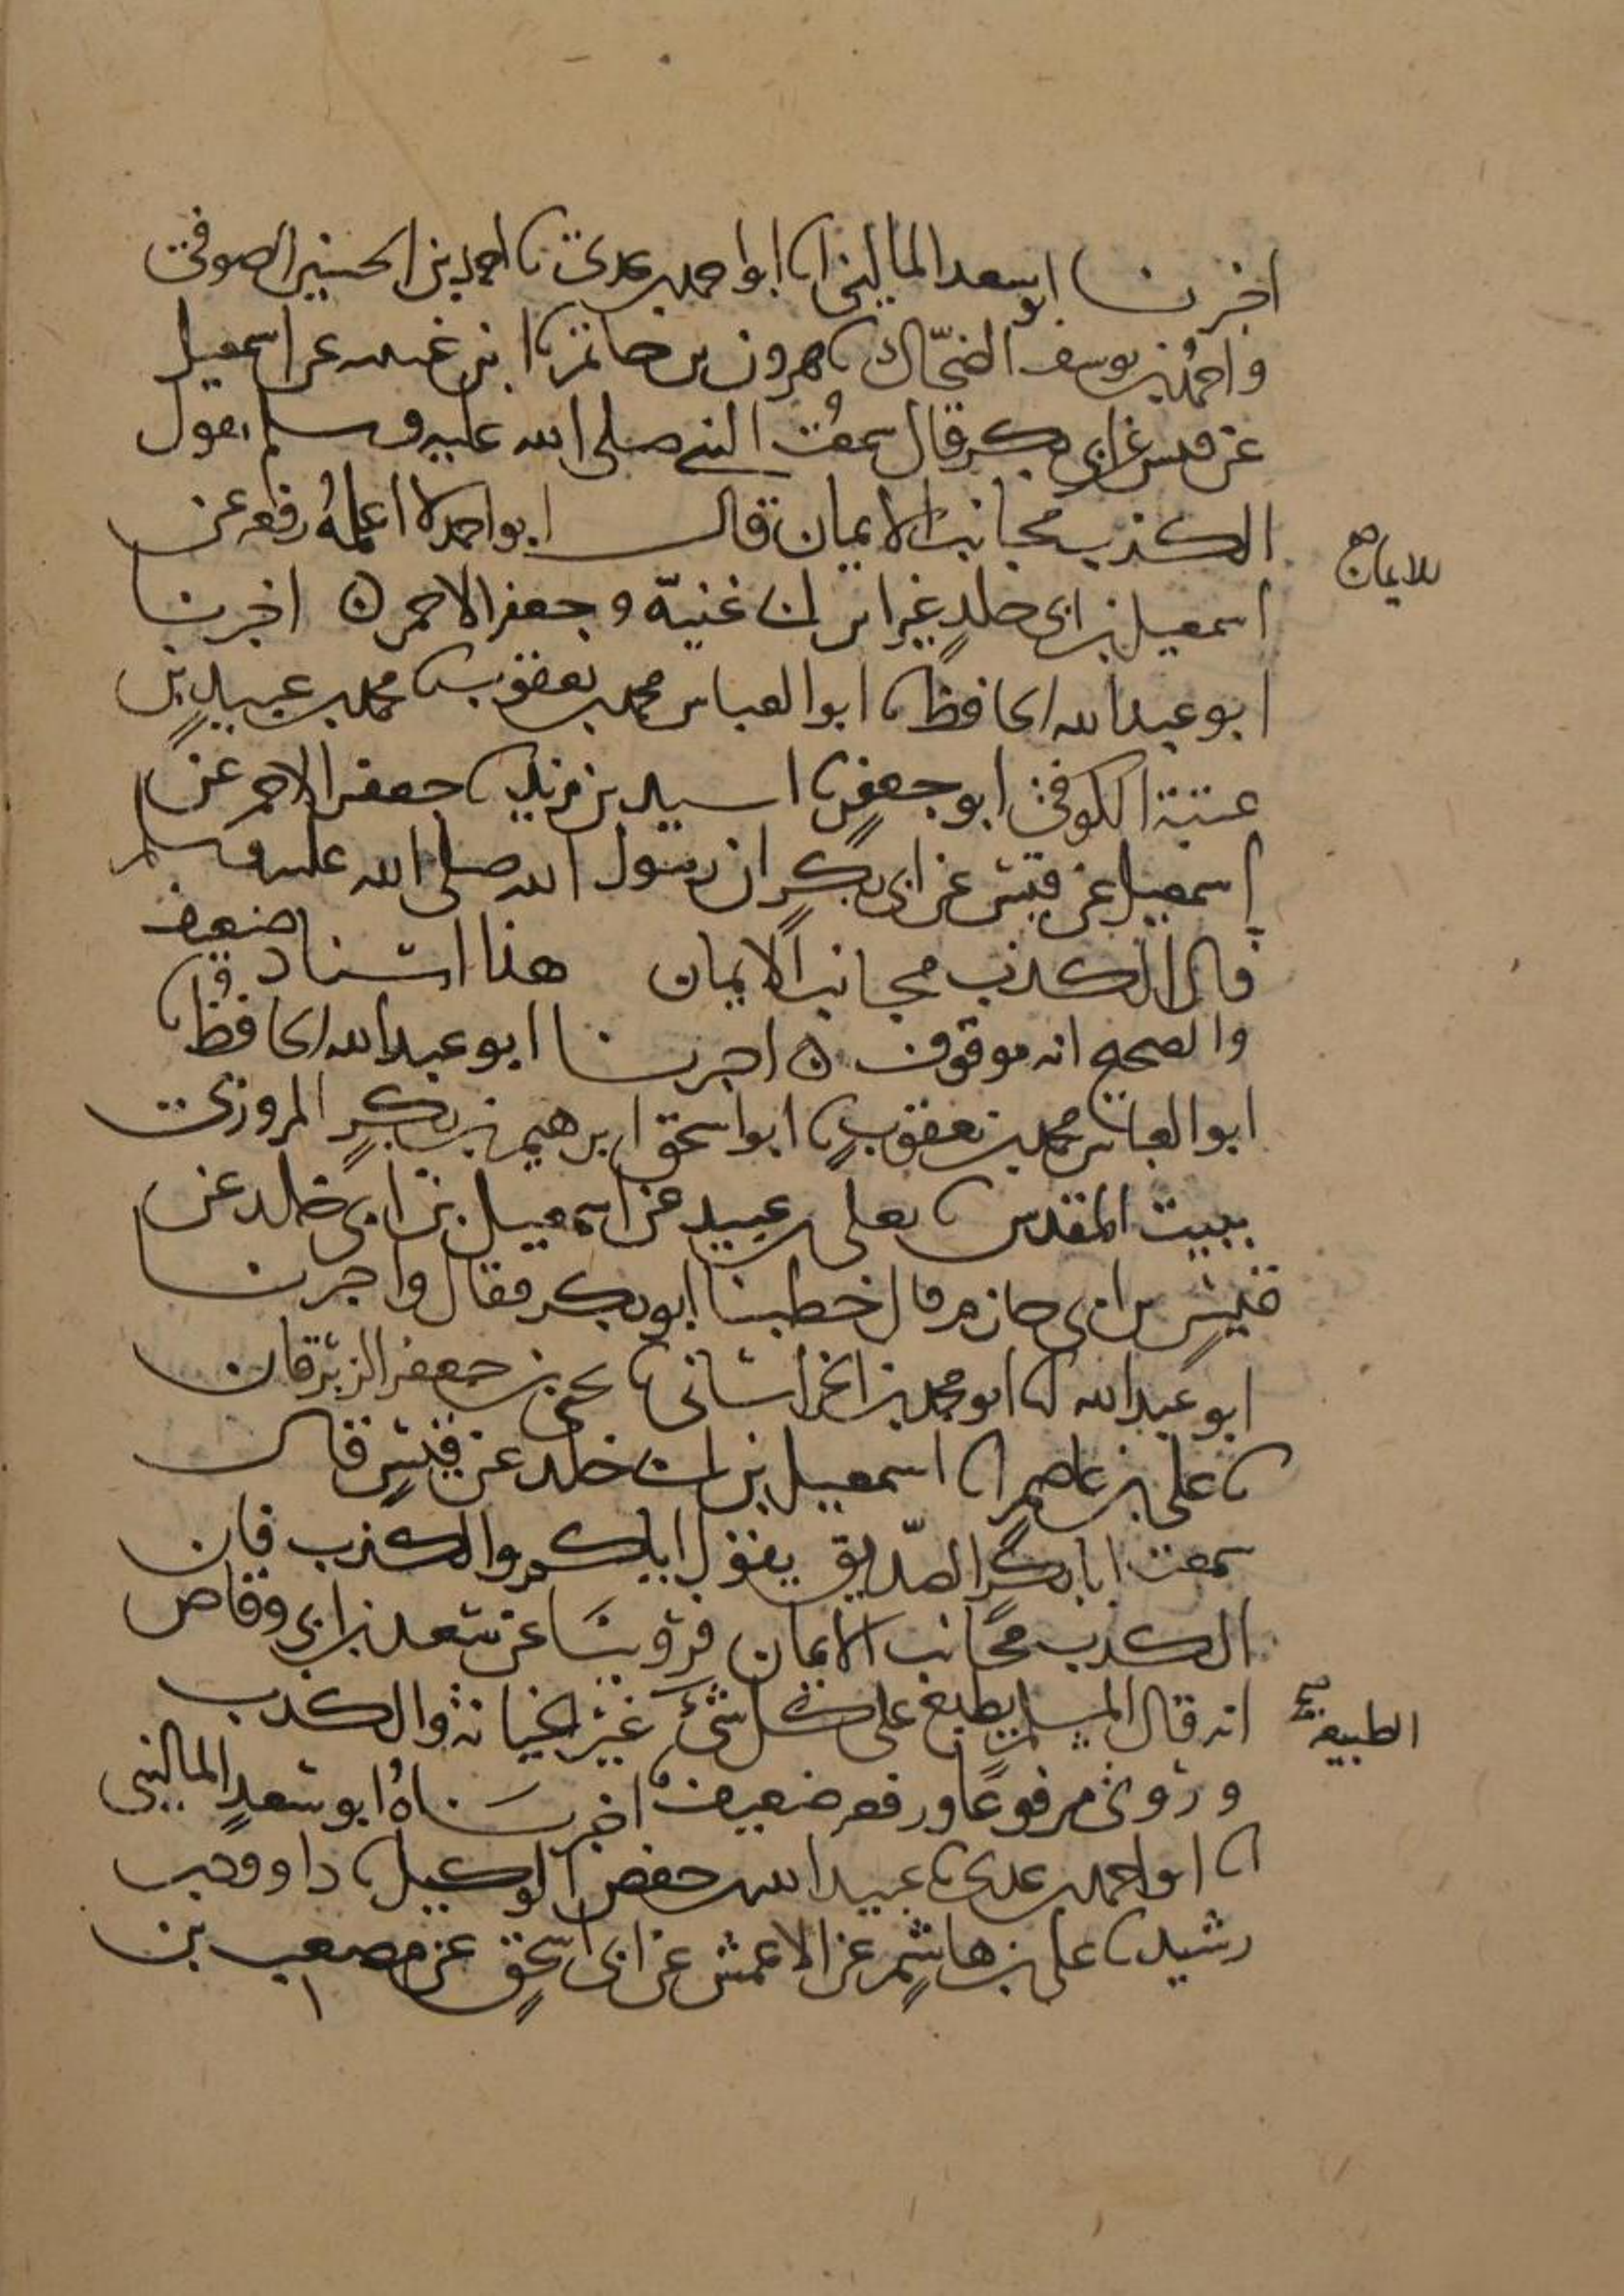 اخبرنا ابو سعد الماليني انا ابو احمد بن عدي نا احمد بن الحسين الصوفي
واحمد بن يوسف الضحّاك نا هرون بن حاتم نا ابن غنيه عن اسمعيل
عن قيس عن ابي بكر قال سمعتُ النبي صلى الله عليه وسلم يقول
الكذب مجانب الايمان قال ابو احمد لا اعلمهُ رفعه عن
للايمان صح
اسمعيل بن ابي خلد غير ابن ابي غنيّة وجعفر الاحمر ه اخبرنا
ابو عبد الله الحافظ نا ابو العباس محمد بن يعقوب نا محمد بن عبيد بن
عتبة الكوفي ابو جعفر نا اسيد بن زيد نا جعفر الاحمر عن
اسمعيل عن قيس عن ابي بكر ان رسول الله صلى الله عليه وسلم
قال الكذب مجانب الايمان هذا اسناد ضعيف
والصحيح انه موقوف ه اخبرنا ابو عبد الله الحافظ نا
ابو العباس محمد بن يعقوب نا ابو اسحق ابرهيم بن بكر المروزي
ببيت المقدس نا يعلى بن عبيد عن اسمعيل بن ابي خلد عن
قيس بن ابي حازم قال خطبنا ابو بكر فقال واخبرنا
ابو عبد الله انا ابو محمد بن الخراساني نا يحيى بن جعفر الزبرقان
نا علي بن عاصم انا اسمعيل بن ابي خلد عن قيس قال
سمعت ابا بكر الصّديق يقول اياكم والكذب فان
الكذب مجانب الايمان وروينَا عن سعد بن ابي وقاص
انه قال المسلم يطبع على كل شيء غير الخيانة والكذب
الطبيعة صح
وروي مرفوعًا ورفعه ضعيف اخبرنَاهُ ابو سعدٍ الماليني
انا ابو احمد بن عدي نا عبيد الله بن حفص الوكيل نا داوود بن
رشيد نا علي بن هاشم عن الاعمش عن ابي اسحق عن مصعب بن